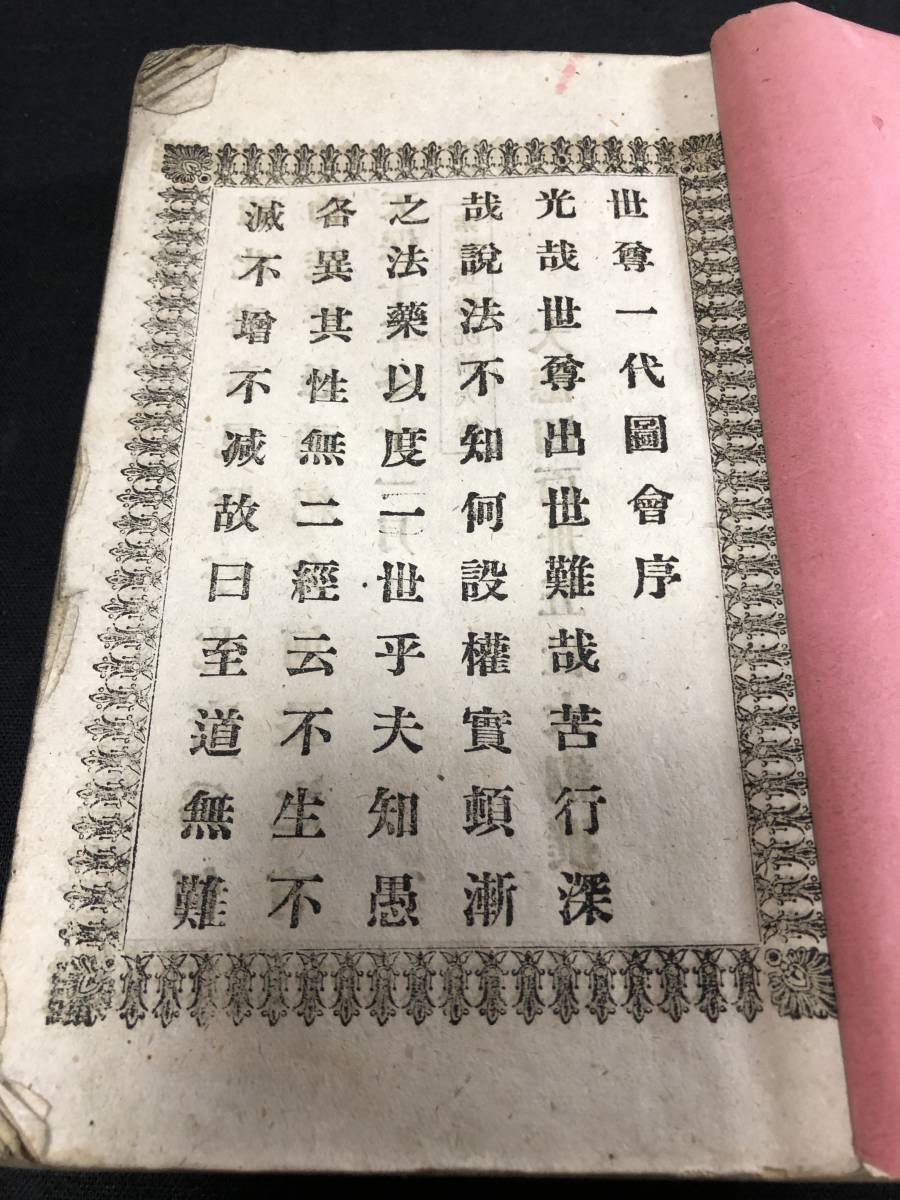 世尊一代圖會序
光哉世尊出世難哉苦行深
哉說法不知何設權實頓漸
之法藥以度一世乎夫知愚
各異其性無二經云不生不
滅不增不減故曰至道無難